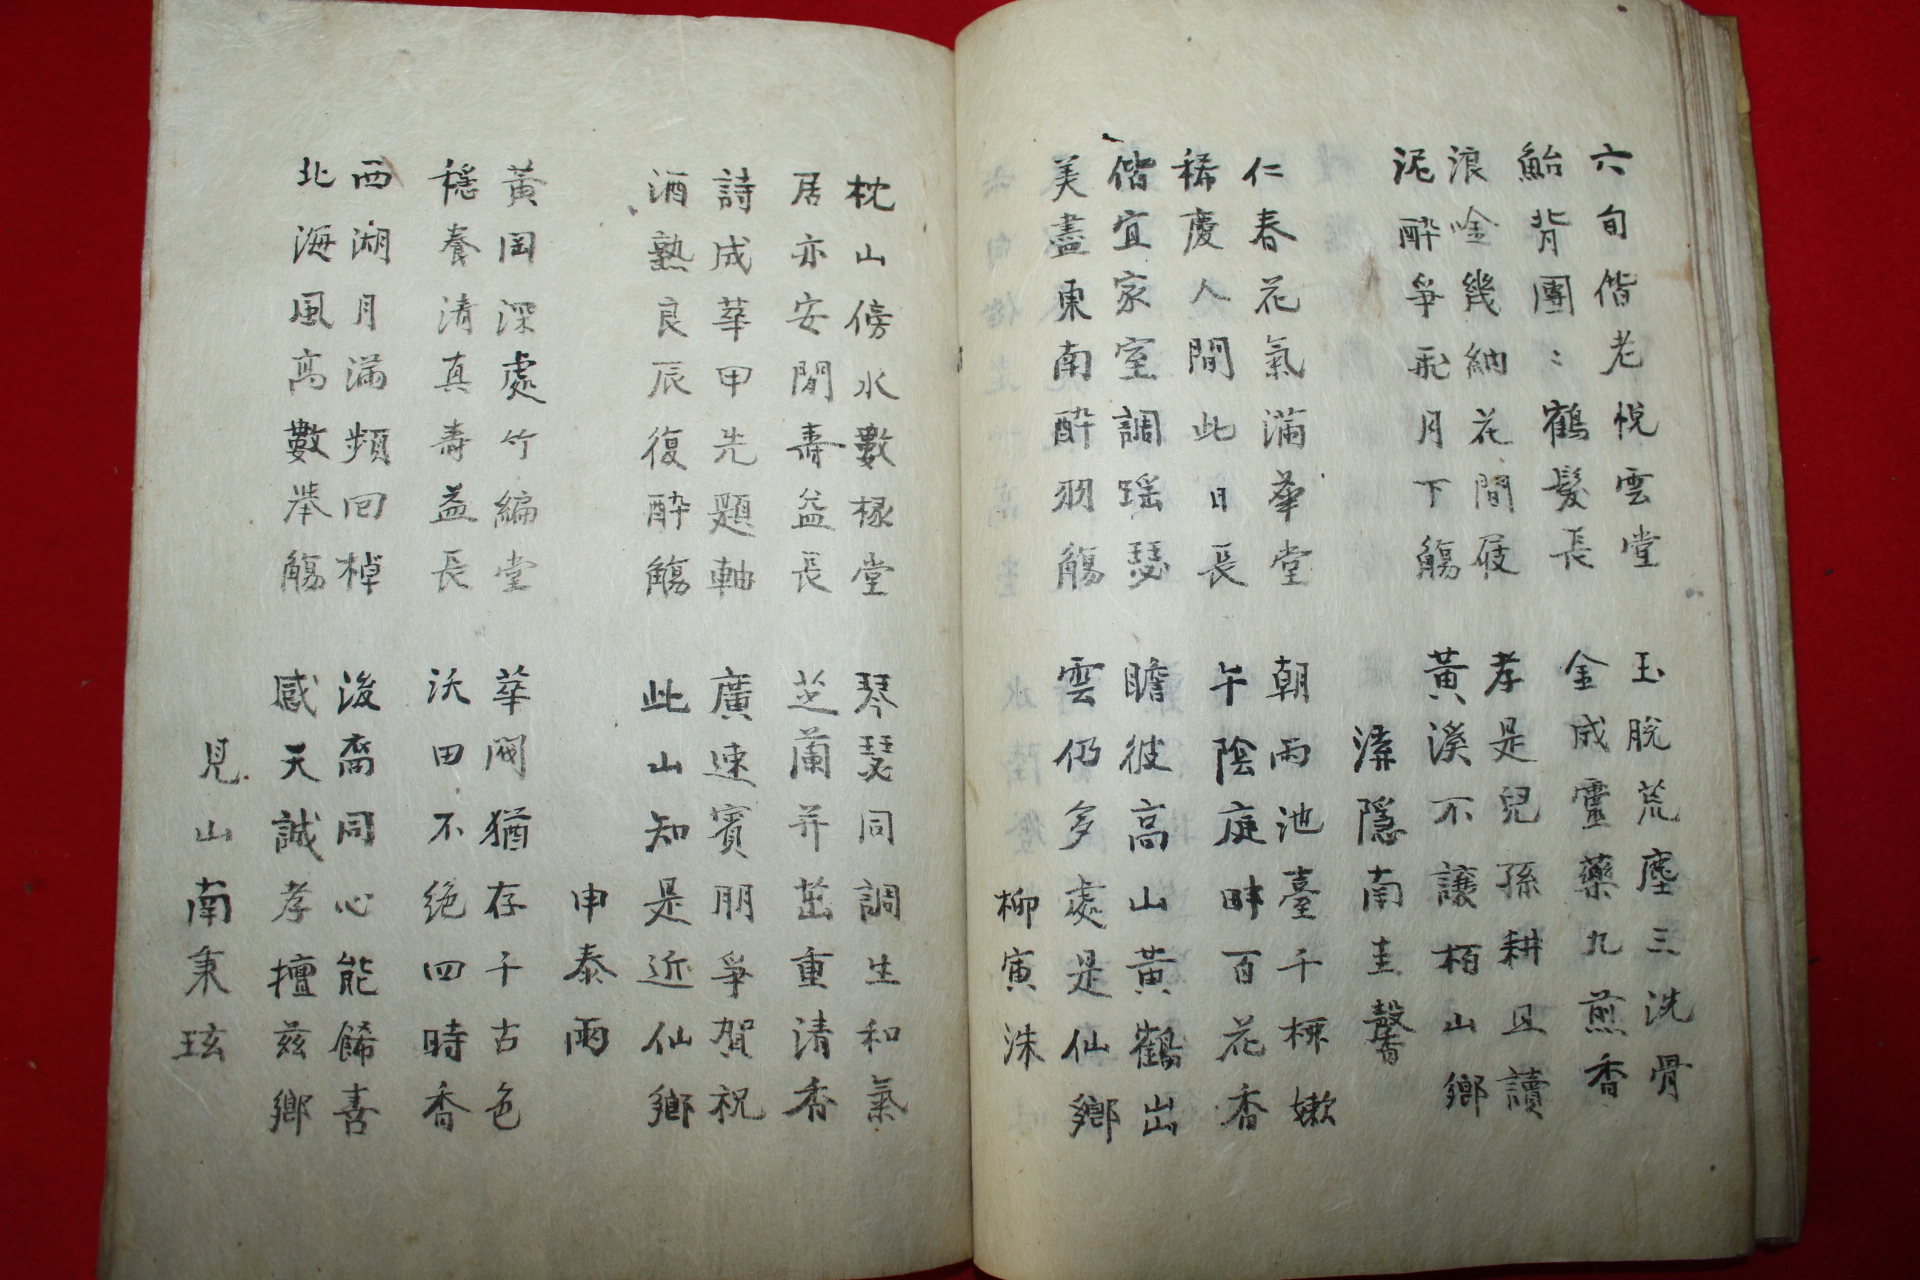 六旬偕老悅雲堂　玉脫荒塵三洗骨
鮐背團〻鶴髮長　金成靈藥九煎香
浪唫幾納花間屐　孝是兒孫耕且讀
泥酔爭飛月下觴　黃溪不讓栢山鄉
溁隱南圭馨
仁春花氣滿華堂　朝雨池臺千樑嫩
稀慶人間此日長　午陰庭畔百花香
偕宜家室調瑶瑟　瞻彼高山黃鶴出
美盡東南酔羽觴　雲仍多處是仙鄉
柳寅洙
枕山傍水數椽堂　琴瑟同調生和氣
居亦安閒壽益長　芝蘭并茁重清香
詩成華甲先題軸　廣速賓朋爭賀祝
酒熟良辰復酔觴　此山知是近仙鄉
申泰雨
黃岡深處竹編堂　華閥猶存千古色
穩養清真壽益長　沃田不絶四時香
西湖月滿頻回棹　後裔同心能餙喜
北海風高數举觴　感天誠孝擅玆鄉
見山南秉玹